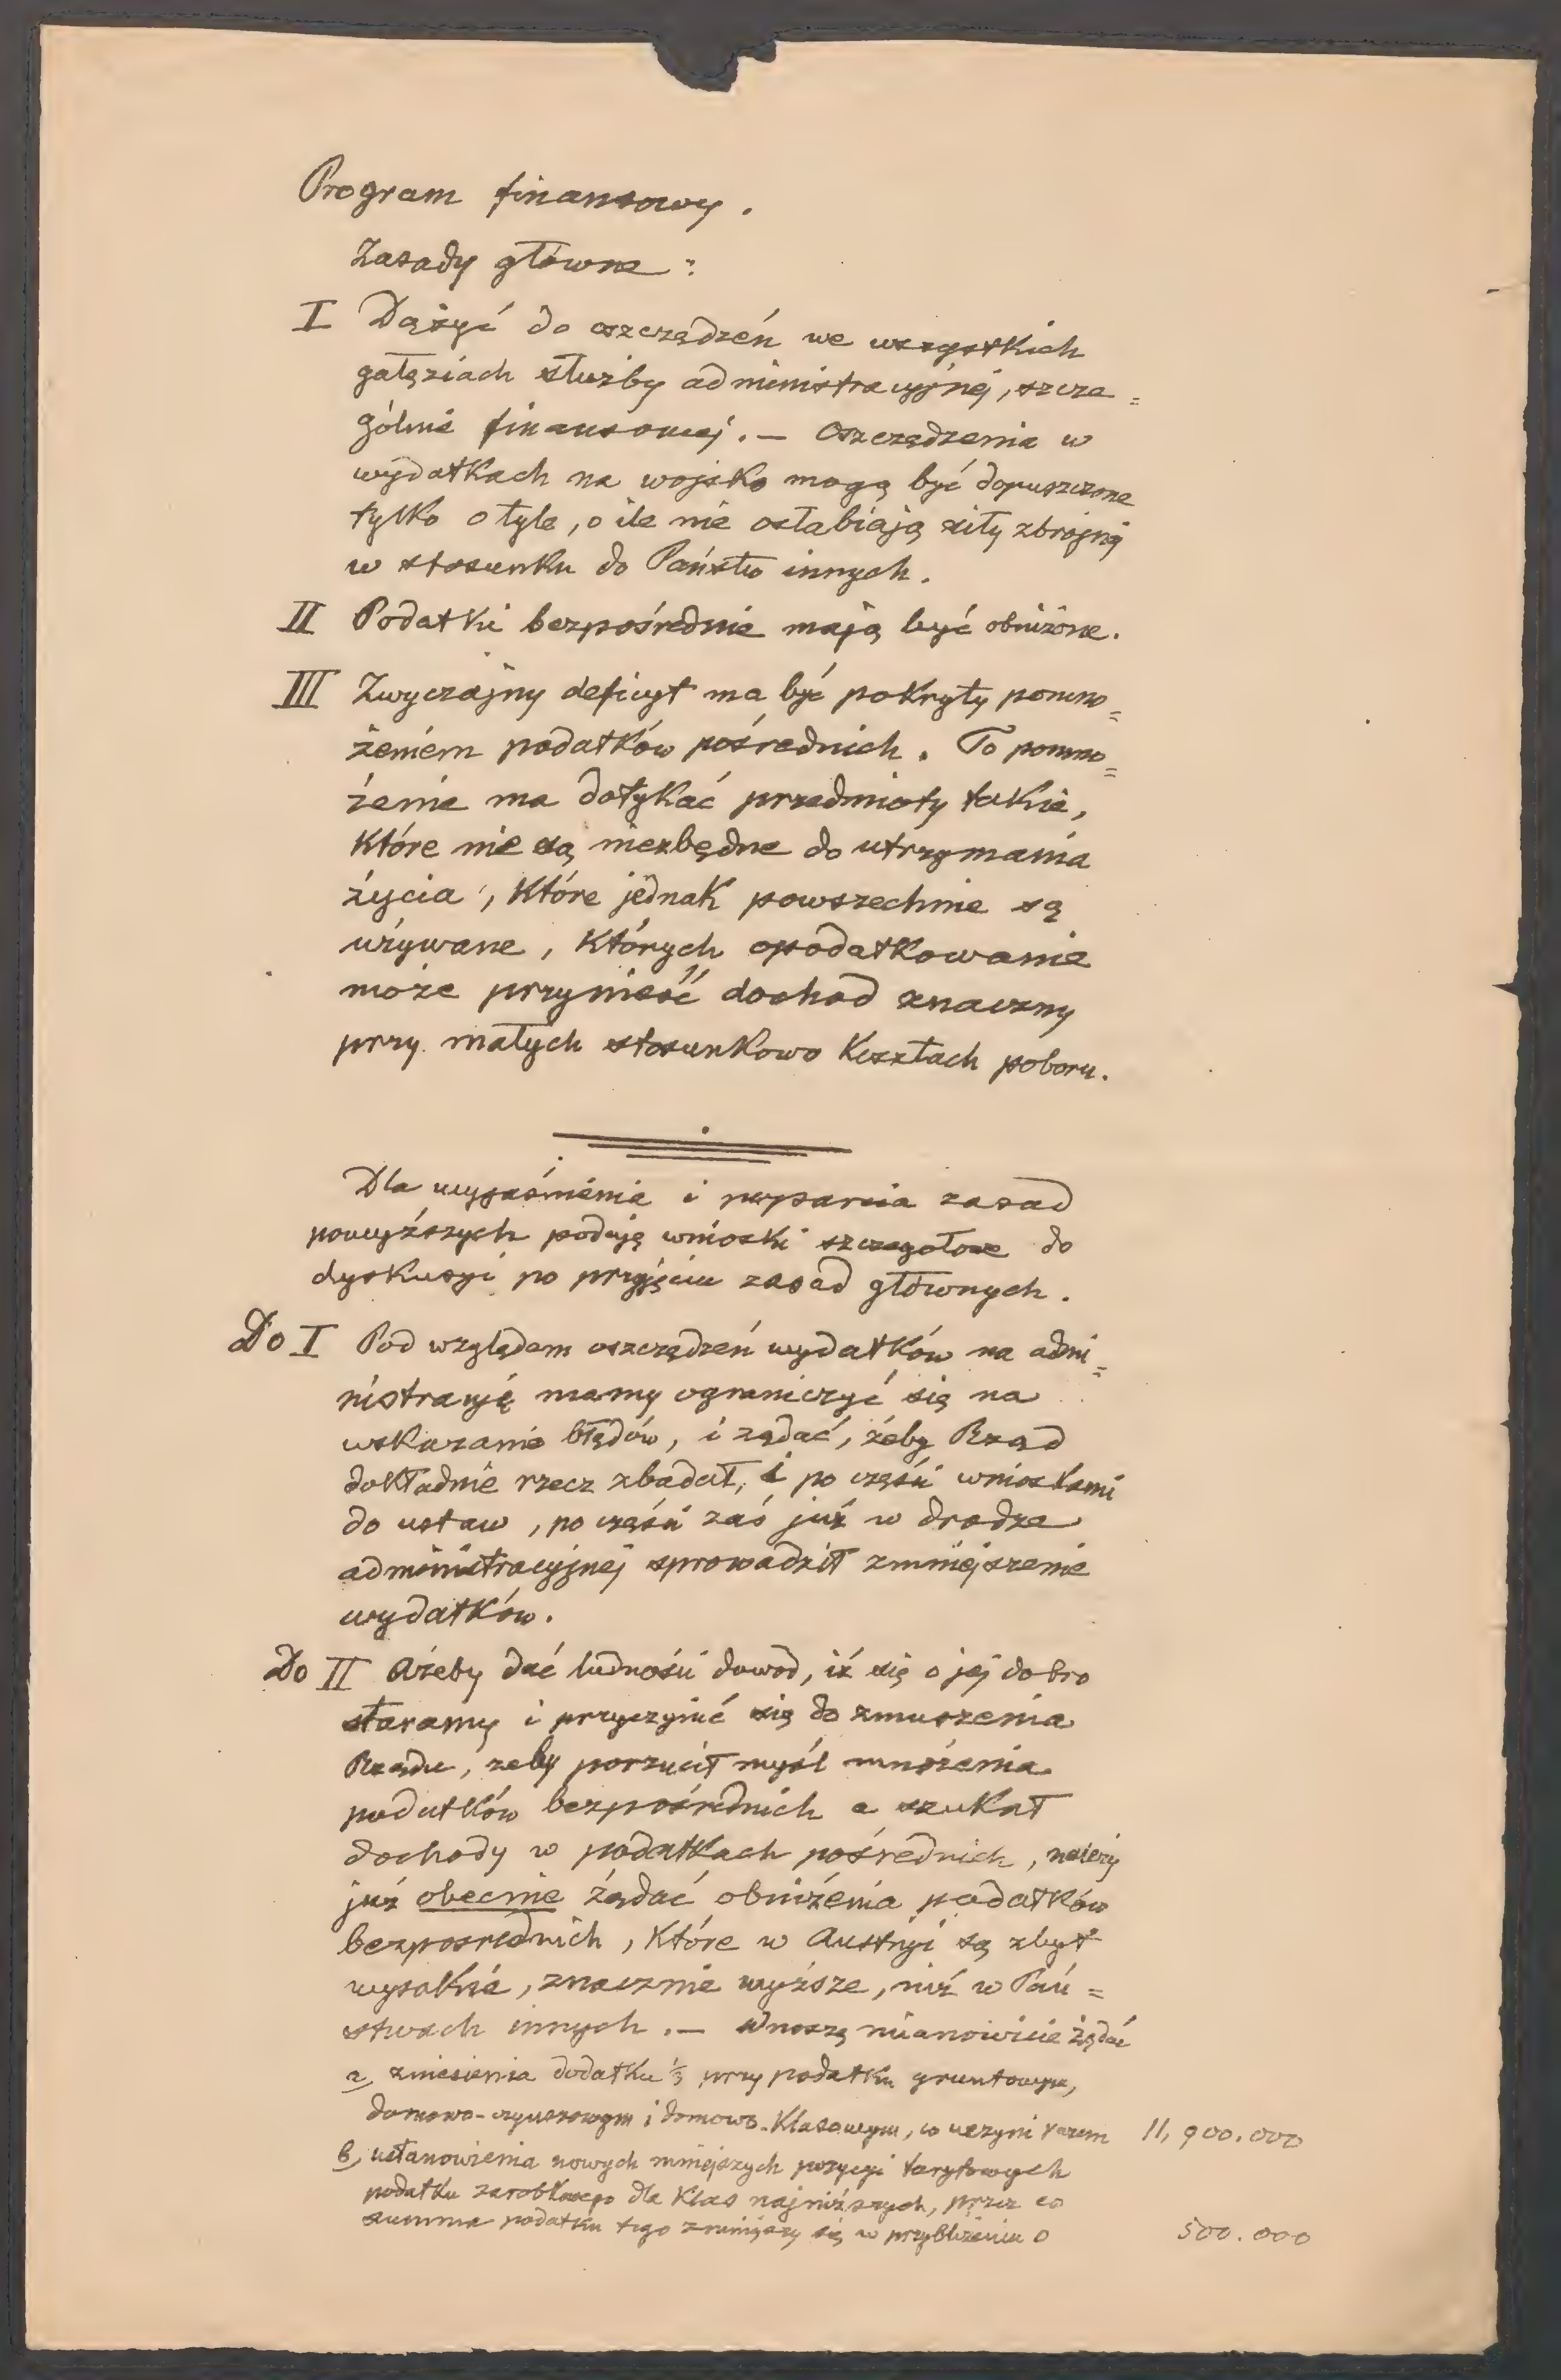 Program finansowy.
Zasady główne:
I Dążyć do oszczędzeń we wszystkich
gałęziach służby administracyjnej, szcze=
gólnie finansowej. — Oszczędzenia w
wydatkach na wojsko mogą być dopuszczone
tylko o tyle, o ile nie osłabiają siły zbrojnej
w stosunku do Państw innych.
II Podatki bezpośrednie mają być obniżone.
III Zwyczajny deficyt ma być pokryty pomno=
żeniem podatków pośrednich. To pomno=
żenie ma dotykać przedmioty takie,
które nie są niezbędne do utrzymania
życia, które jednak powszechnie są
używane, których opodatkowanie
może przynieść dochod znaczny
przy małych stosunkowo kosztach poboru.
Dla wyjaśnienia i wsparcia zasad
powyższych podaję wnioski szczegołowe do
dyskusyi po przyjęciu zasad głównych.
Do I Pod względem oszczędzeń wydatków na admi=
nistracyję mamy ograniczyć się na
wskazanie błędów, i żądać, żeby Rząd
dokładnie rzecz zbadał, i po części wnioskami
do ustaw, po części zaś już w drodze
administracyjnej sprowadził zmniejszenie
wydatków.
Do II Ażeby dać ludności dowod, iż się o jej dobro
staramy i przyczynić się do zmuszenia
Rządu, żeby porzucił myśl mnożenia
podatków bezpośrednich a szukał
dochody w podatkach pośrednich, należy
już obecnie żądać obniżenia podatków
bezpośrednich, które w Austryi są zbyt
wysokie, znacznie wyższe, niż w Pań=
stwach innych. — Wnoszę mianowicie żądać
a, zniesienia dodatku 1/3 przy podatku gruntowym,
domowo-czynszowym i domowo-klasowym, co uczyni razem 11,900.000
b, ustanowienia nowych mniejszych pozycyi taryfowych
podatku zarobkowego dla klas najniższych, przez co
summa podatku tego zmniejszy się w przybliżeniu o 500.000